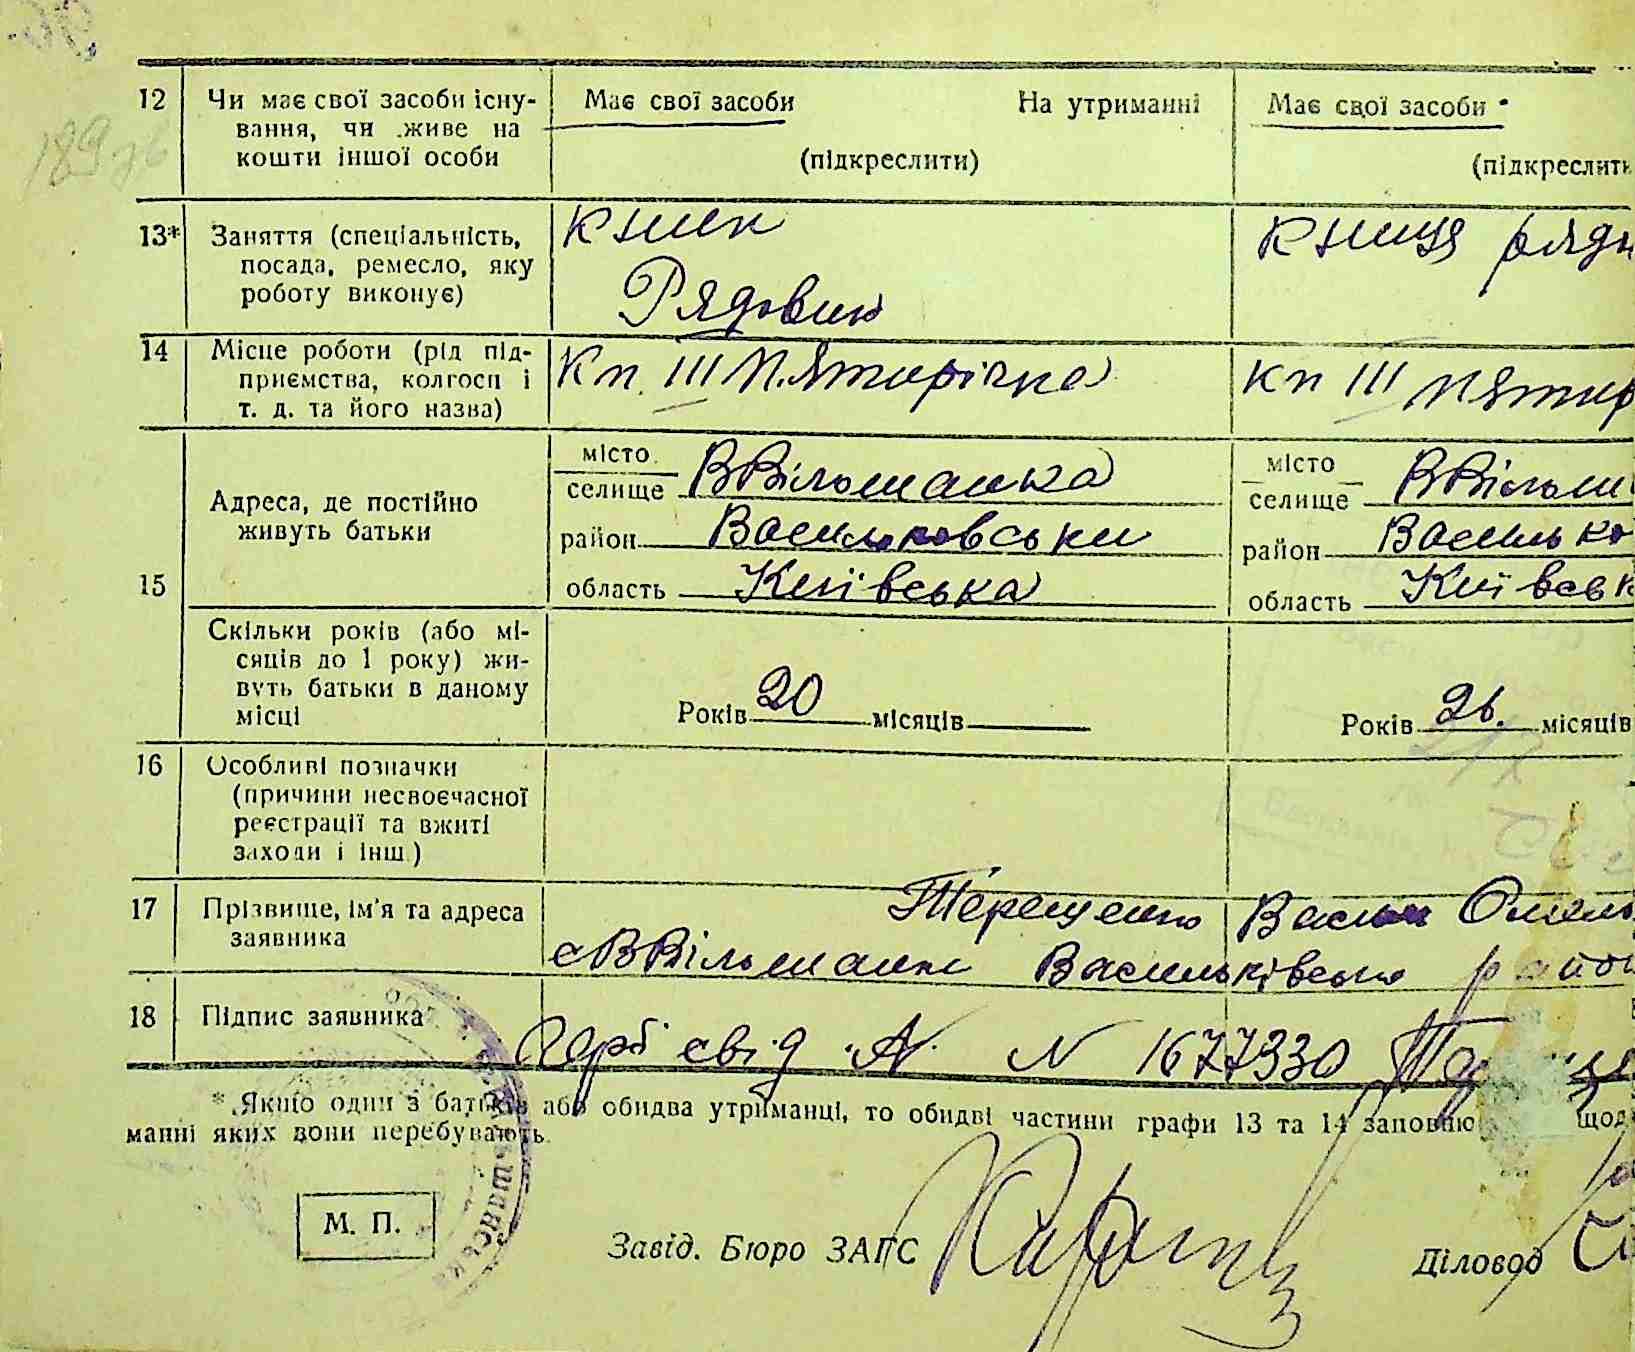 12 Чи має свої засоби існу- Має свої засоби На утриманні Має свої засоби
вання, чи живе на
кошти іншої особи (підкреслити) (підкреслить
189
13* Заняття (спеціальність, кник книця рядн
посада, ремесло, яку
роботу виконує) Рядовий
14 Місце роботи (рід під- Кп. III П'ятирічка кп III п'ятир
приємства, колгосп і
т. д. та його назва)
місто місто
селище ВВільшанка селище ВВільш
Адреса, де постійно
живуть батьки район Васильковськи район Василько
15 область Київська область Київськ
Скільки років (або мі-
сяців до 1 року) жи-
вуть батьки в даному
місці Років 20 місяців Років 26. місяців
16 Особливі позначки
(причини несвоєчасної
реєстрації та вжиті
заходи і інш.)
17 Прізвище, ім'я та адреса Терещенко Василь Омель
заявника с ВВільшанка Васильківсько район
18 Підпис заявника
свід А N 1677330
* Якщо один з батьків або обидва утриманці, то обидві частини графи 13 та 14 заповню щод
манні яких вони перебувають.
М. П. Завід. Бюро ЗАГС Діловод